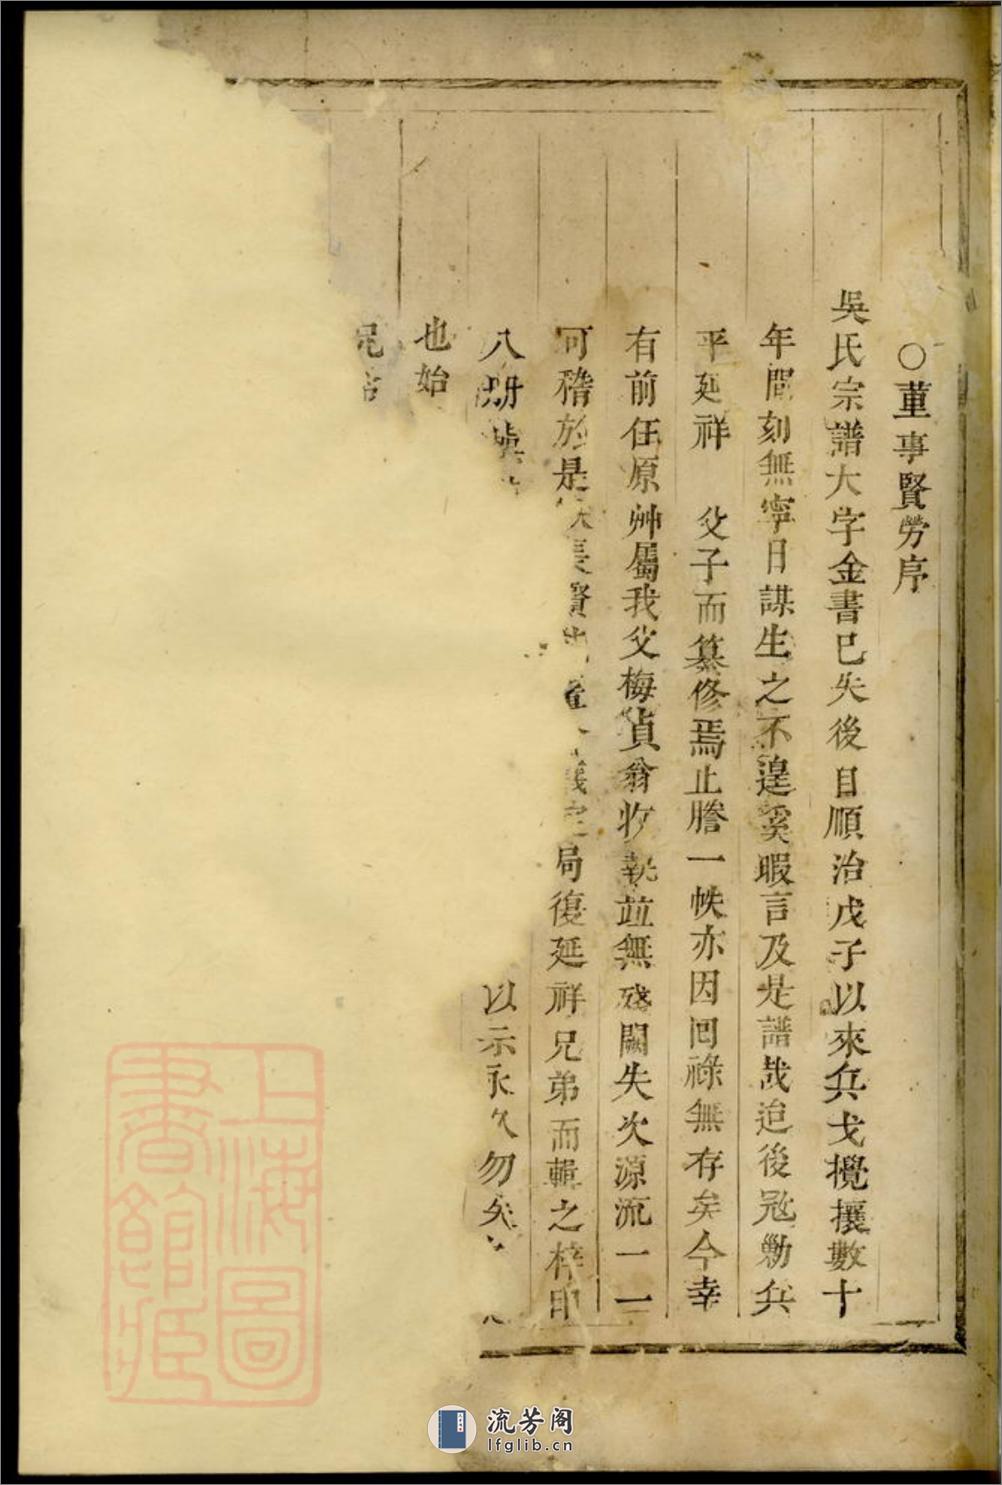 ○董事賢勞序
吳氏宗譜大字金書已失後自順治戊子以來兵戈攪攘數十
年間刻無寧日謀生之不遑奚暇言及是譜哉迨後冦勦兵
平延祥 父子而纂修焉止謄一帙亦因囘祿無存矣今幸
有前任原艸屬我父梅貞翁收執竝無殘闕失次源流一一
可稽於是 長賢 局復延祥兄弟而輯之梓印
八册 以示永久勿矣
也始
上海圖書館藏
流芳阁
lfglib.cn